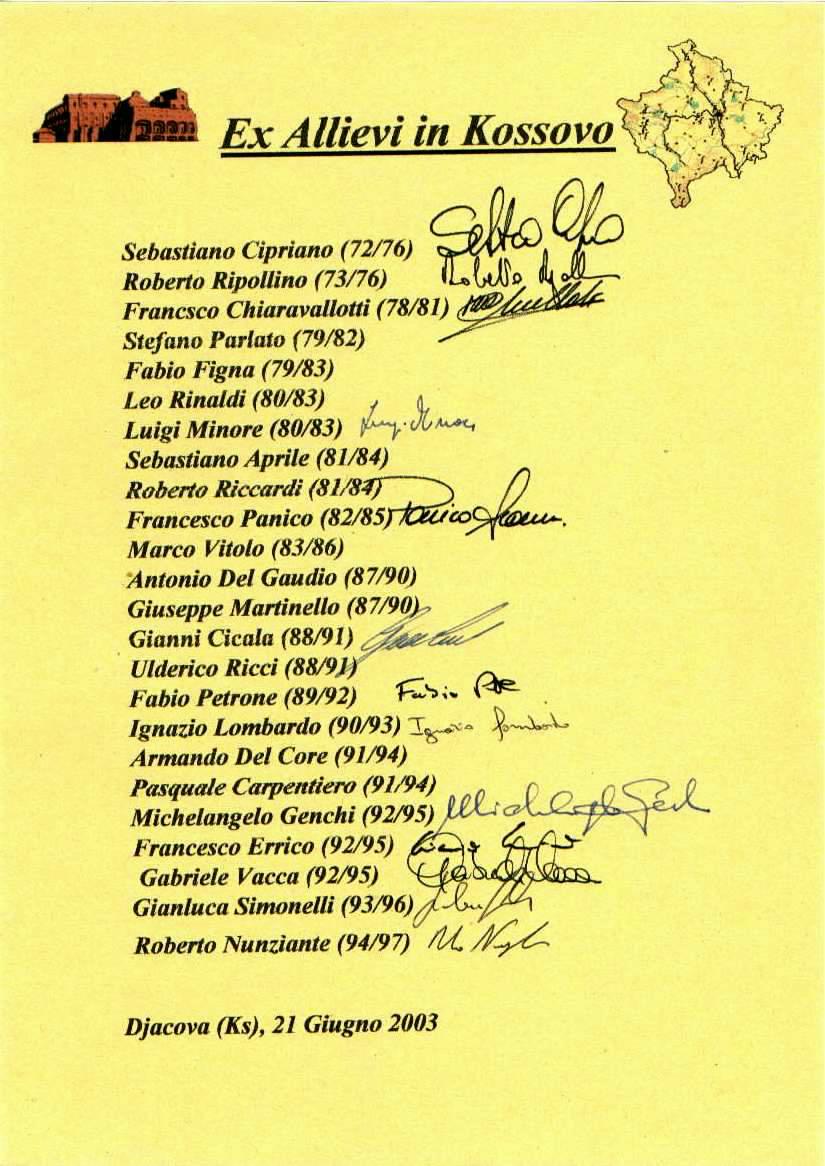 Ex Allievi in Kossovo
Sebastiano Cipriano (72/76)
Roberto Ripollino (73/76)
Francsco Chiaravallotti (78/81)
Stefano Parlato (79/82)
Fabio Figna (79/83)
Leo Rinaldi (80/83)
Luigi Minore (80/83)
Sebastiano Aprile (81/84)
Roberto Riccardi (81/84)
Francesco Panico (82/85) Panico
Marco Vitolo (83/86)
Antonio Del Gaudio (87/90)
Giuseppe Martinello (87/90)
Gianni Cicala (88/91)
Ulderico Ricci (88/91)
Fabio Petrone (89/92) Fabio
Ignazio Lombardo (90/93) Ignazio Lombardo
Armando Del Core (91/94)
Pasquale Carpentiero (91/94)
Michelangelo Genchi (92/95) Michelangelo Genchi
Francesco Errico (92/95)
Gabriele Vacca (92/95)
Gianluca Simonelli (93/96)
Roberto Nunziante (94/97)
Djacova (Ks), 21 Giugno 2003